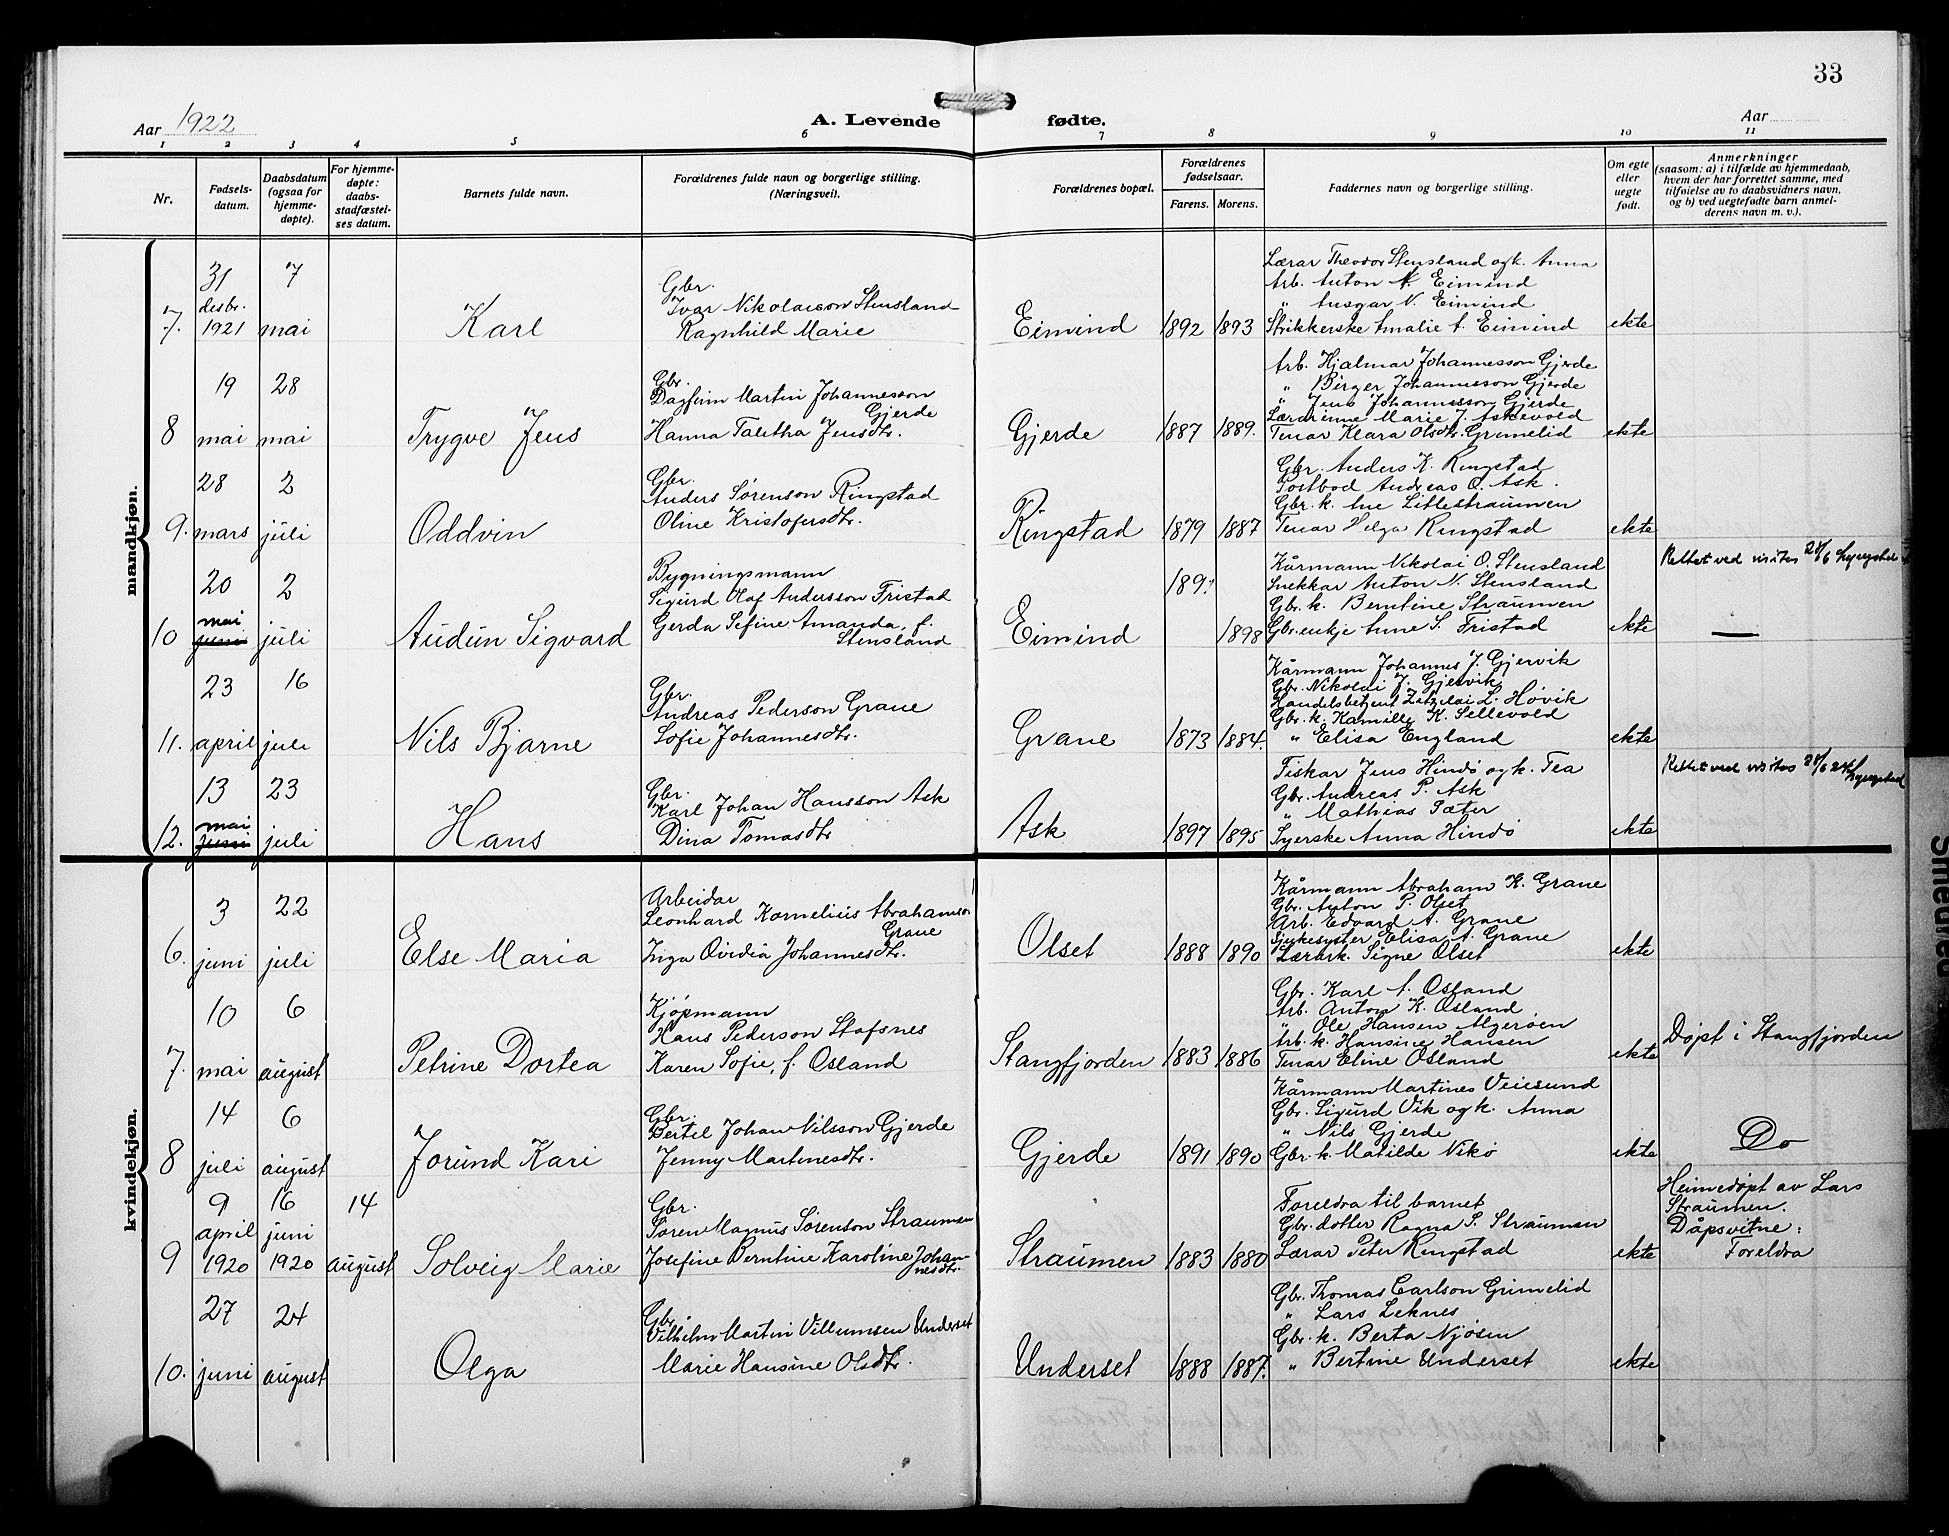 33
Aar 1922
A. Levende fødte.
Aar
1 2 3 4 5 6 7 8 9 10 11
Nr.
Fødsels-
datum.
Daabsdatum
(ogsaa for
hjemme-
døpte).
For hjemme-
døpte:
daabs-
stadfæstel-
ses datum.
Barnets fulde navn.
Forældrenes fulde navn og borgerlige stilling.
(Næringsvei).
Forældrenes bopæl.
Forældrenes
fødselsaar.
Farens. Morens.
Faddernes navn og borgerlige stilling.
Om egte
eller
uegte
født.
Anmerkninger
(saasom: a) i tilfælde av hjemmedaab,
hvem der har forrettet samme, med
tilføielse av to daabsvidners navn,
og b) ved uegtefødte barn anmel-
derens navn m. v.).
mandkjøn.
7.
31
desbr.
1921
7
mai
Karl
Gbr.
Ivar Nikolaison Stensland
Ragnhild Marie
Eimind
1892
1893
Lærar Theodor Stensland og k. Anna
Arb. Anton N. Eimind
" Ansgar N. Eimind
Strikkerske Amalie A. Eimind
ekte
8
19
mai
28
mai
Trygve Jens
Gbr.
Dagfinn Martin Johannesson
Gjerde
Hanna Talitha Jensdtr.
Gjerde
1887
1889.
Arb. Hjalmar Johannesson Gjerde
" Birger Johannesson Gjerde
" Jens Johannesson Gjerde
Lærarinne Marie J. Askevold
Tenar Klara Olsdtr. Grimelid
ekte
9.
28
mars
2
juli
Oddvin
Gbr.
Anders Sørenson Ringstad
Oline Kristofersdtr.
Ringstad
1879
1887
Gbr. Anders K. Ringstad
Postbod Andreas O. Ask.
Gbr. k. Ane Littlestraumen
Tenar Helga Ringstad
ekte
10
20
mai
juni
2
juli
Audun Sigvard
Bygningsmann
Sigurd Olaf Andersson Fristad
Gerda Sefine Amanda, f.
Stensland
Eimind
189
1898
Kårmann Nikolai O. Stensland
Snekkar Anton N. Stensland
Gbr. k. Berntine Straumen
Gbr. enkje Anne S. Fristad
ekte
Rettet ved visitas 28/6
—
11.
23
april
16
juli
Nils Bjarne
Gbr.
Andreas Pederson Grane
Sofie Johannesdtr.
Grane
1873
1884.
Kårmann Johannes J. Gjervik
Gbr. Nikolai J. Gjervik
L. Høvik
Gbr. k. Kamilla K. Sellevold
" Elisa England
ekte
12.
13
mai
juni
23
juli
Hans
Gbr.
Karl Johan Hansson Ask
Dina Tomasdtr.
Ask
1897
1895
Fiskar Jens Hindø og k. Tea
Gbr. Andreas P. Ask
" Mathias Sæter
Syerske Anna Hindø
ekte
Rettet ved visitas 28/6 24
kvindekjøn.
6.
3
juni
22
juli
Else Maria
Arbeidar
Leonhard Kornelius Abrahamson
Grane
Inga Ovidia Johannesdtr.
Olset
1888
1890
Kårmann Abraham K. Grane
Gbr. Anton P. Olset
Arb. Edvard A. Grane
Sjukesyster Elisa A. Grane
Lærark. Signe Olset
ekte
7.
10
mai
6
august
Petrine Dortea
Kjøpmann
Hans Pederson Stafsnes
Karen Sofie, f. Osland
Stangfjorden
1883
1886
Gbr. Karl A. Osland
Arb. Anton K. Osland
" Ole Hansen Algerøen
Arb. k. Hansine Hansen
Tenar Eline Osland
ekte
Døpt i Stangfjorden
8
14
juli
6
august
Jorund Kari
Gbr.
Bertel Johan Nilsson Gjerde
Jenny Martinesdtr.
Gjerde
1891
1890
Kårmann Martines Veiesund
Gbr. Sigurd Vik og k. Anna
" Nils Gjerde
Gbr. k. Matilde Nikø
ekte
Do
9
9
april
1920
16
juni
1920
14
august
Solveig Marie
Gbr.
Søren Magnus Sørenson Straumen
Josefine Berntine Karoline Johan-
nesdtr.
Straumen
1883
1880
Foreldra til barnet
Gbr. dotter Ragna S. Straumen
Lærar Peter Ringstad
ekte
Heimedøpt av Lars
Straumen.
Dåpsvitne:
Foreldra
10.
27
juni
24
august
Olga
Gbr.
Vilhelm Martin Villumsen Underset
Marie Hansine Olsdtr.
Underset
1888
1887.
Gbr. Thomas Carlson Grimelid
" Lars Leknes
Gbr. k. Berta Njøsen
" Bertine Underset
ekte